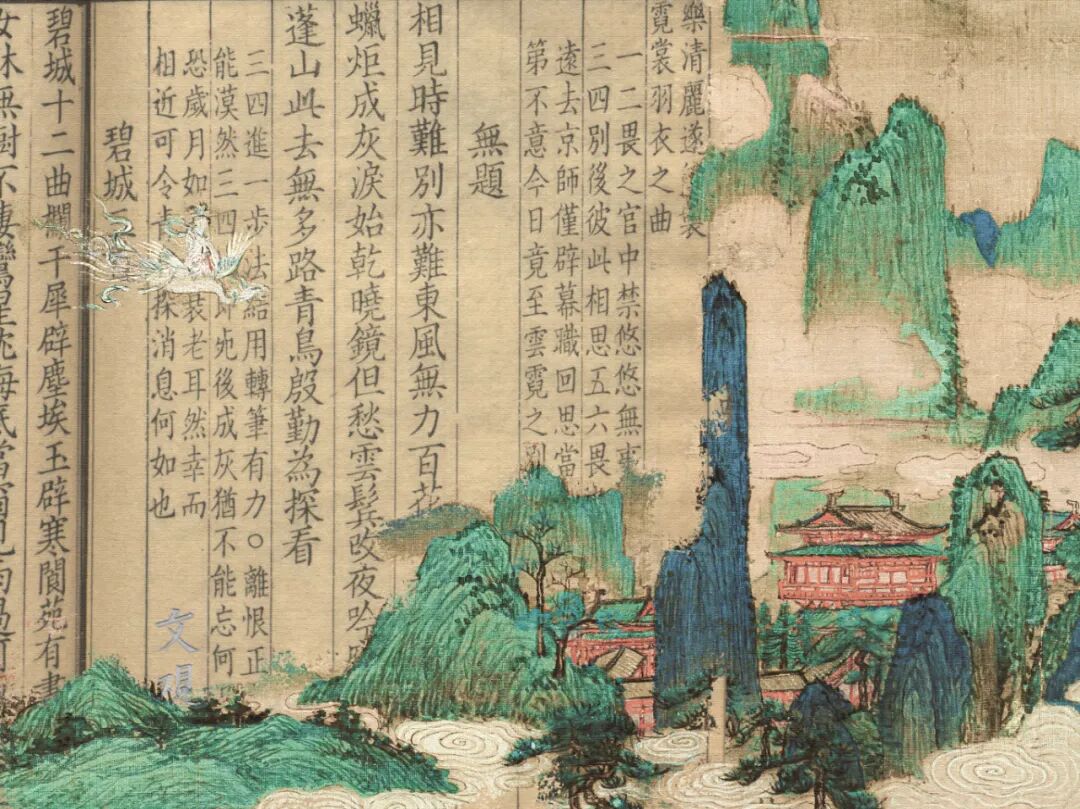 樂清麗遂
霓裳羽衣之曲
一二畏之官中禁悠悠無
三四別後彼此相思五六畏
遠去京師僅辟幕職回思當
第不意今日竟至雲霓之
無題
相見時難別亦難東風無力百花
蠟炬成灰淚始乾曉鏡但愁雲鬂改夜吟
蓬山此去無多路青鳥殷勤為探看
三四進一步法結用轉筆有力○離恨正
能漠然三四 後成灰猶不能忘何
恐歲月如 老耳然幸而
相近可令 探消息何如也
碧城
文
碧城十二曲欄干犀辟塵埃玉辟寒閬苑有書
女牀無樹不棲鸞星沈海底當窗見雨過